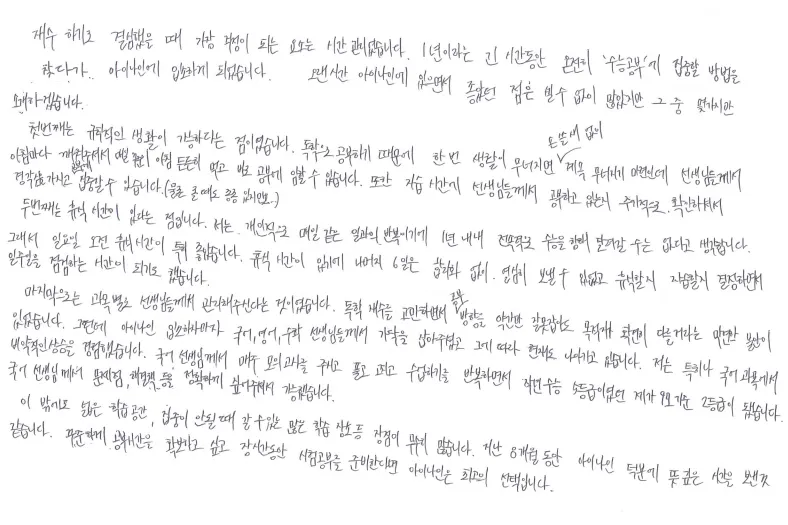 재수 하기로 결심했을 때 가장 걱정이 되는 요소는 시간 관리였습니다. 1년이라는 긴 시간동안 온전히 '수능공부'에 집중할 방법을
찾다가.. 아이나인에 입소하게 되었습니다. 오랜시간 아이나인에 있으면서 좋았던 점은 셀수 없이 많았지만 그 중 몇가지만
소개하겠습니다.
첫번째는 규칙적인 생활이 가능하다는 점이었습니다. 독학으로 공부하기 때문에 한 번 생활이 무너지면 손 쓸새 없이 계속 무너지기 마련인데 선생님들께서
아침마다 깨워주셔서 매일 아침 든든히 먹고 바로 공부에 임할 수 있습니다. 또한 자습 시간에 선생님들께서 공부하고 있는지 주기적으로 확인하셔서
경각심 가지고 집중할 수 있습니다. (물론 졸 때도 종종 있지만요.)
두번째는 휴식 시간이 있다는 점입니다. 저는 개인적으로 매일 같은 일과의 반복이기에 1년 내내 전속력으로 수능을 향해 달려갈 수는 없다고 생각합니다.
그래서 일요일 오전 휴식시간이 특히 좋았습니다. 휴식 시간이 있기에 나머지 6일은 합리화 없이 열심히 보낼 수 있었고 휴식할지 자습할지 결정하면서
일주일을 점검하는 시간이 되기도 했습니다.
마지막으로는 과목별로 선생님들께서 관리해주신다는 것이였습니다. 독학 재수를 고민하면서 공부 방향을 약간만 잘못잡아도 목적지가 확연히 다를거라는 막연한 불안이
있었습니다. 그런데 아이나인 입소하자마자 국어, 영어, 수학 선생님들께서 가닥을 잡아주셨고 그에 따라 현재도 나아가고 있습니다. 저는 특히나 국어 과목에서
비약적인 상승을 경험했습니다. 국어 선생님께서 매주 모의고사를 주시고 풀고 오답하고 수업하기를 반복하면서 작년수능 5등급이였던 제가 9모기준 2등급이 됐습니다.
국어 선생님께서 문제점, 해결책 등을 정확하게 짚어주셔서 가능했습니다.
이 밖에도 넓은 학습공간, 집중이 안될 때 갈 수 있는 많은 학습 장소등 장점이 무척 많습니다. 지난 8개월 동안 아이나인 덕분에 뜻깊은 시간을 보낸것
같습니다. 꾸준하게 공부시간을 확보하고 싶고 장시간동안 시험공부를 준비한다면 아이나인은 최고의 선택입니다.